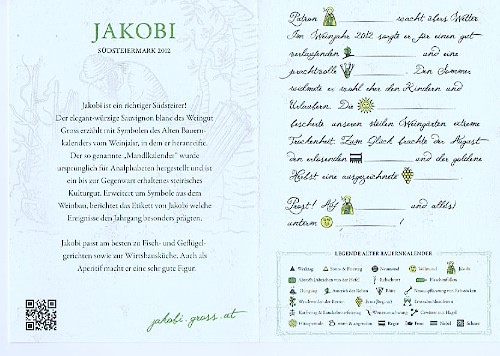 JAKOBI
SÜDSTEIERMARK 2012
Jakobi ist ein richtiger Südsteirer!
Der elegant-würzige Sauvignon blanc des Weingut
Gross erzählt mit Symbolen des Alten Bauern-
kalenders vom Weinjahr, in dem er heranreifte.
Der so genannte „Mandlkalender" wurde
ursprünglich für Analphabeten hergestellt und ist
ein bis zur Gegenwart erhaltenes steirisches
Kulturgut. Erweitert um Symbole aus dem
Weinbau, berichtet das Etikett von Jakobi welche
Ereignisse den Jahrgang besonders prägten.
Jakobi passt am besten zu Fisch- und Geflügel-
gerichten sowie zur Wirtshausküche. Auch als
Aperitif macht er eine sehr gute Figur.
jakobi.gross.at
Patron wacht übers Wetter
Im Weinjahr 2012 sorgte er für einen gut
verlaufenden und eine
prachtvolle . Den Sommer
widmete er wohl eher den Kindern und
Urlaubern. Die
bescherte unseren steilen Weingärten extreme
Trockenheit. Zum Glück brachte der August
den erlösenden und der goldene
Herbst eine ausgezeichnete
Prost! Auf und alles
unterm !
LEGENDE ALTER BAUERNKALENDER
Werktag Sonn- & Feiertag Neumond Vollmond Jakobi
Austrieb Rebschnitt
Blüte
Weinlese
Hitzeperiode warm & angenehm Regen Frost Nebel Schnee